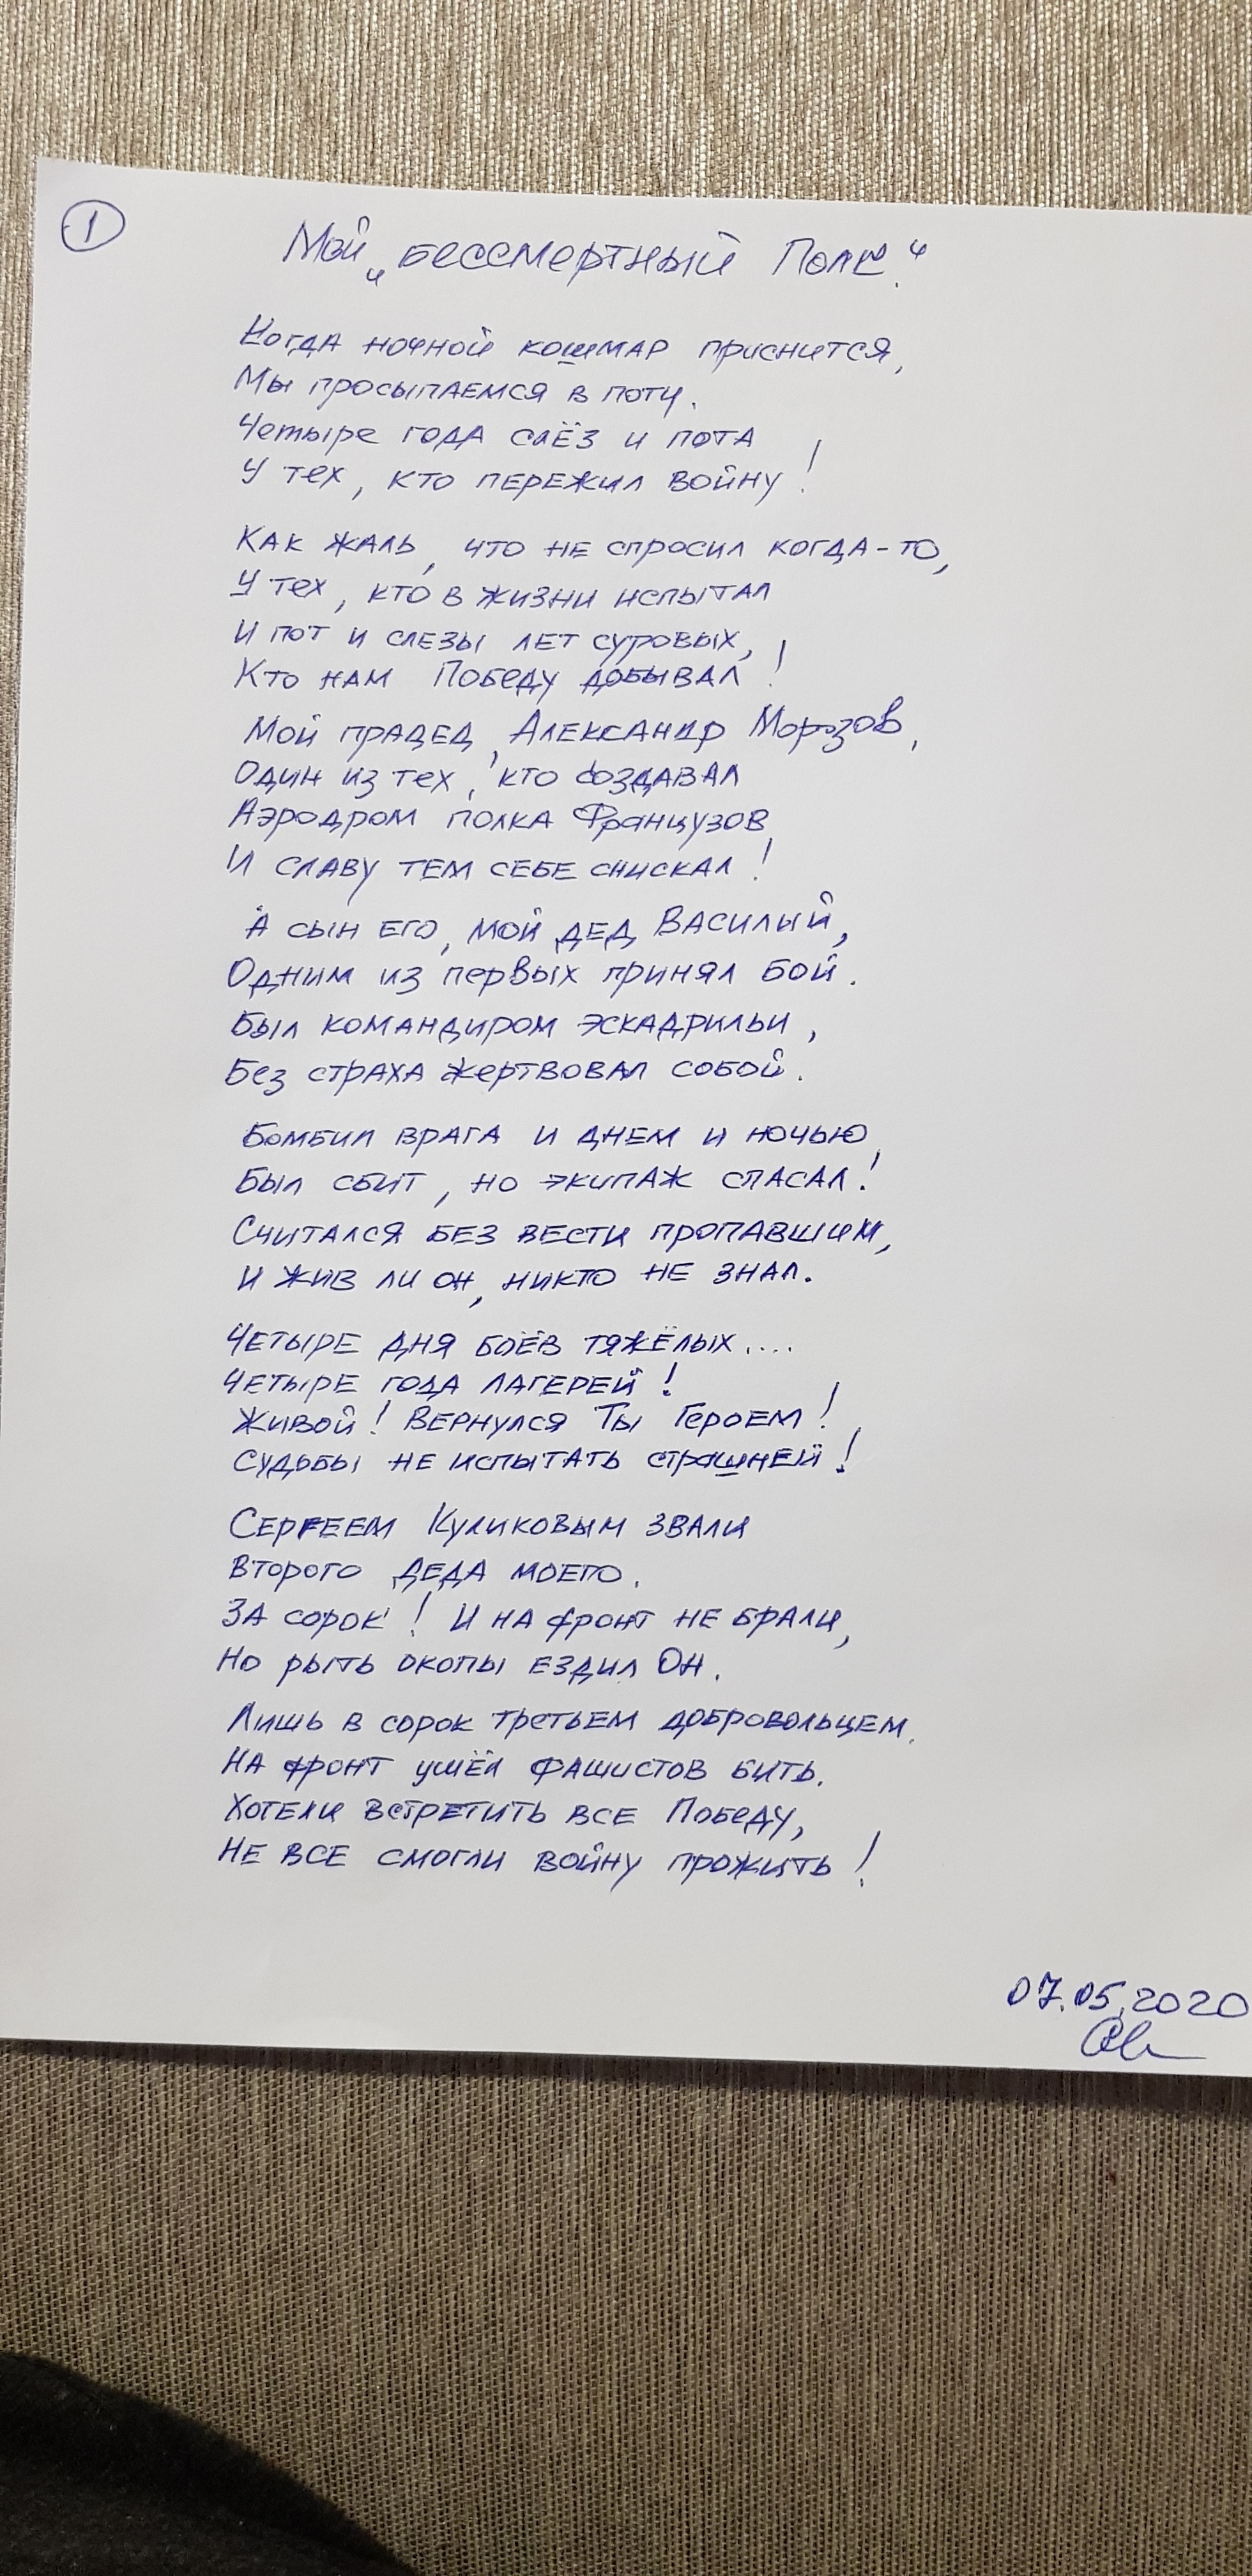 1
Мой „Бессмертный Полк“.
Когда ночной кошмар приснится,
Мы просыпаемся в поту.
Четыре года слёз и пота
У тех, кто пережил войну!
Как жаль, что не спросил когда-то,
У тех, кто в жизни испытал
И пот и слезы лет суровых,
Кто нам Победу добывал!
Мой прадед, Александр Морозов,
Один из тех, кто создавал
Аэродром полка Французов
И славу тем себе снискал!
А сын его, мой дед Василий,
Одним из первых принял бой.
Был командиром эскадрильи,
Без страха жертвовал собой.
Бомбил врага и днем и ночью,
Был сбит, но экипаж спасал!
Считался без вести пропавшим,
И жив ли он, никто не знал.
Четыре дня боёв тяжёлых....
Четыре года лагерей!
Живой! Вернулся Ты Героем!
Судьбы не испытать страшней!
Сергеем Куликовым звали
Второго деда моего.
За сорок! И на фронт не брали,
Но рыть окопы ездил Он.
Лишь в сорок третьем добровольцем.
На фронт ушёл фашистов бить.
Хотели встретить все Победу,
Не все смогли войну прожить!
07.05.2020